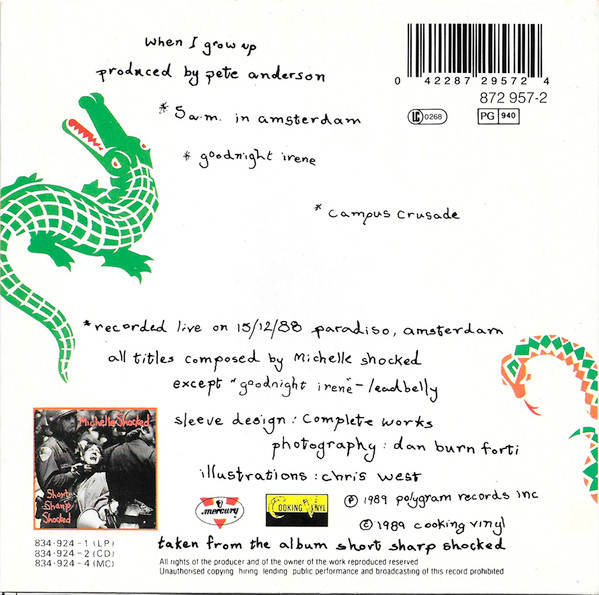 When I grow up
produced by pete anderson
0 42287 29572 4
872 957-2
LC 0268
PG 940
*5 a.m. in amsterdam
* goodnight irene
* campus crusade
*recorded live on 15/12/88 paradiso, amsterdam
all titles composed by Michelle shocked
except "goodnight irene" - leadbelly
sleeve design: Complete works
photography: dan burn forti
illustrations: chris west
Michelle Shocked
Short
Sharp
Shocked
mercury
COOKING VINYL
℗ 1989 polygram records inc
© 1989 cooking vinyl
834·924-1 (LP)
834·924-2 (CD)
834·924-4 (MC)
taken from the album short sharp shocked
All rights of the producer and of the owner of the work reproduced reserved
Unauthorised copying, hiring, lending, public performance and broadcasting of this record prohibited